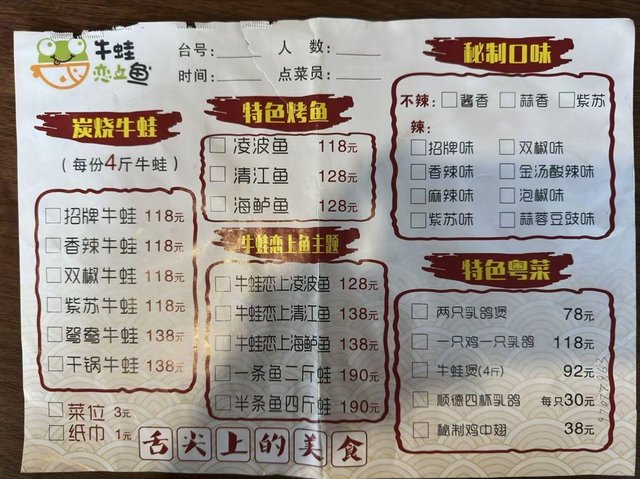 牛蛙
恋上鱼
台号:
人 数:
时间:
点菜员:
炭烧牛蛙
(每份4斤牛蛙)
招牌牛蛙 118元
香辣牛蛙 118元
双椒牛蛙 118元
紫苏牛蛙 118元
鸳鸯牛蛙 138元
干锅牛蛙 138元
菜位 3元
纸巾 1元
特色烤鱼
凌波鱼 118元
清江鱼 128元
海鲈鱼 128元
牛蛙恋上鱼主题
牛蛙恋上凌波鱼 128元
牛蛙恋上清江鱼 138元
牛蛙恋上海鲈鱼 138元
一条鱼二斤蛙 190元
半条鱼四斤蛙 190元
舌尖上的美食
秘制口味
不辣: 酱香 蒜香 紫苏
辣:
招牌味 双椒味
香辣味 金汤酸辣味
麻辣味 泡椒味
紫苏味 蒜蓉豆豉味
特色粤菜
两只乳鸽煲 78元
一只鸡一只乳鸽 118元
牛蛙煲(4斤) 92元
顺德四杯乳鸽 每只30元
秘制鸡中翅 38元